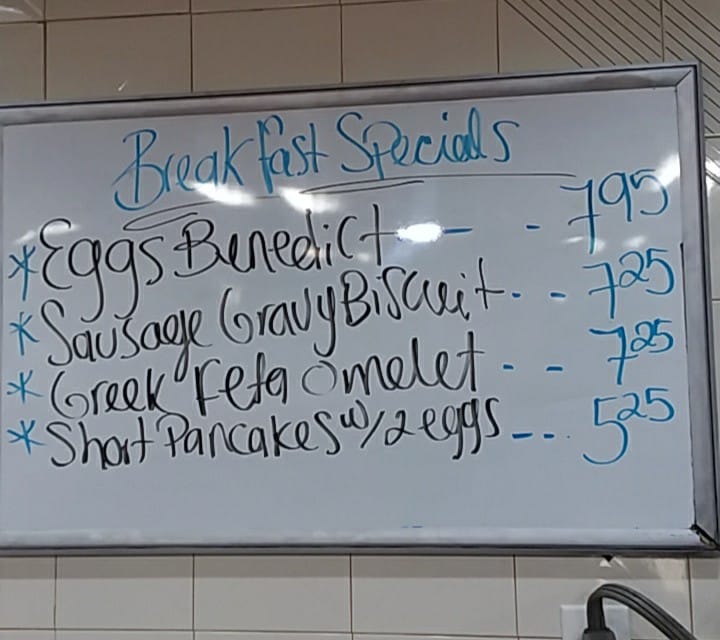 Breakfast Specials
*Eggs Benedict - - 7 95
*Sausage Gravy Biscuit - - 7 25
*Greek Feta Omelet - - 7 25
*Short Pancakes w/2 eggs --- 5 25